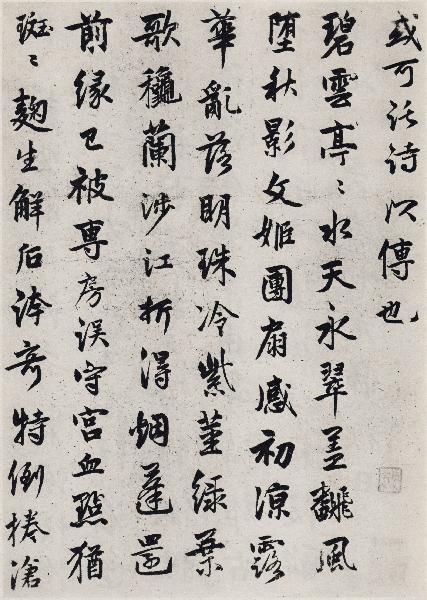 或可託詩以傳也
碧雲亭〻水天永翠盖翻風
堕秋影文姬團扇感初凉露
華亂落明珠冷紫莖綠葉
歌穐蘭涉江折得烟蓮還
前緣已被專房誤守宮血點猶
斑〻麹生解后奇特倒捲滄